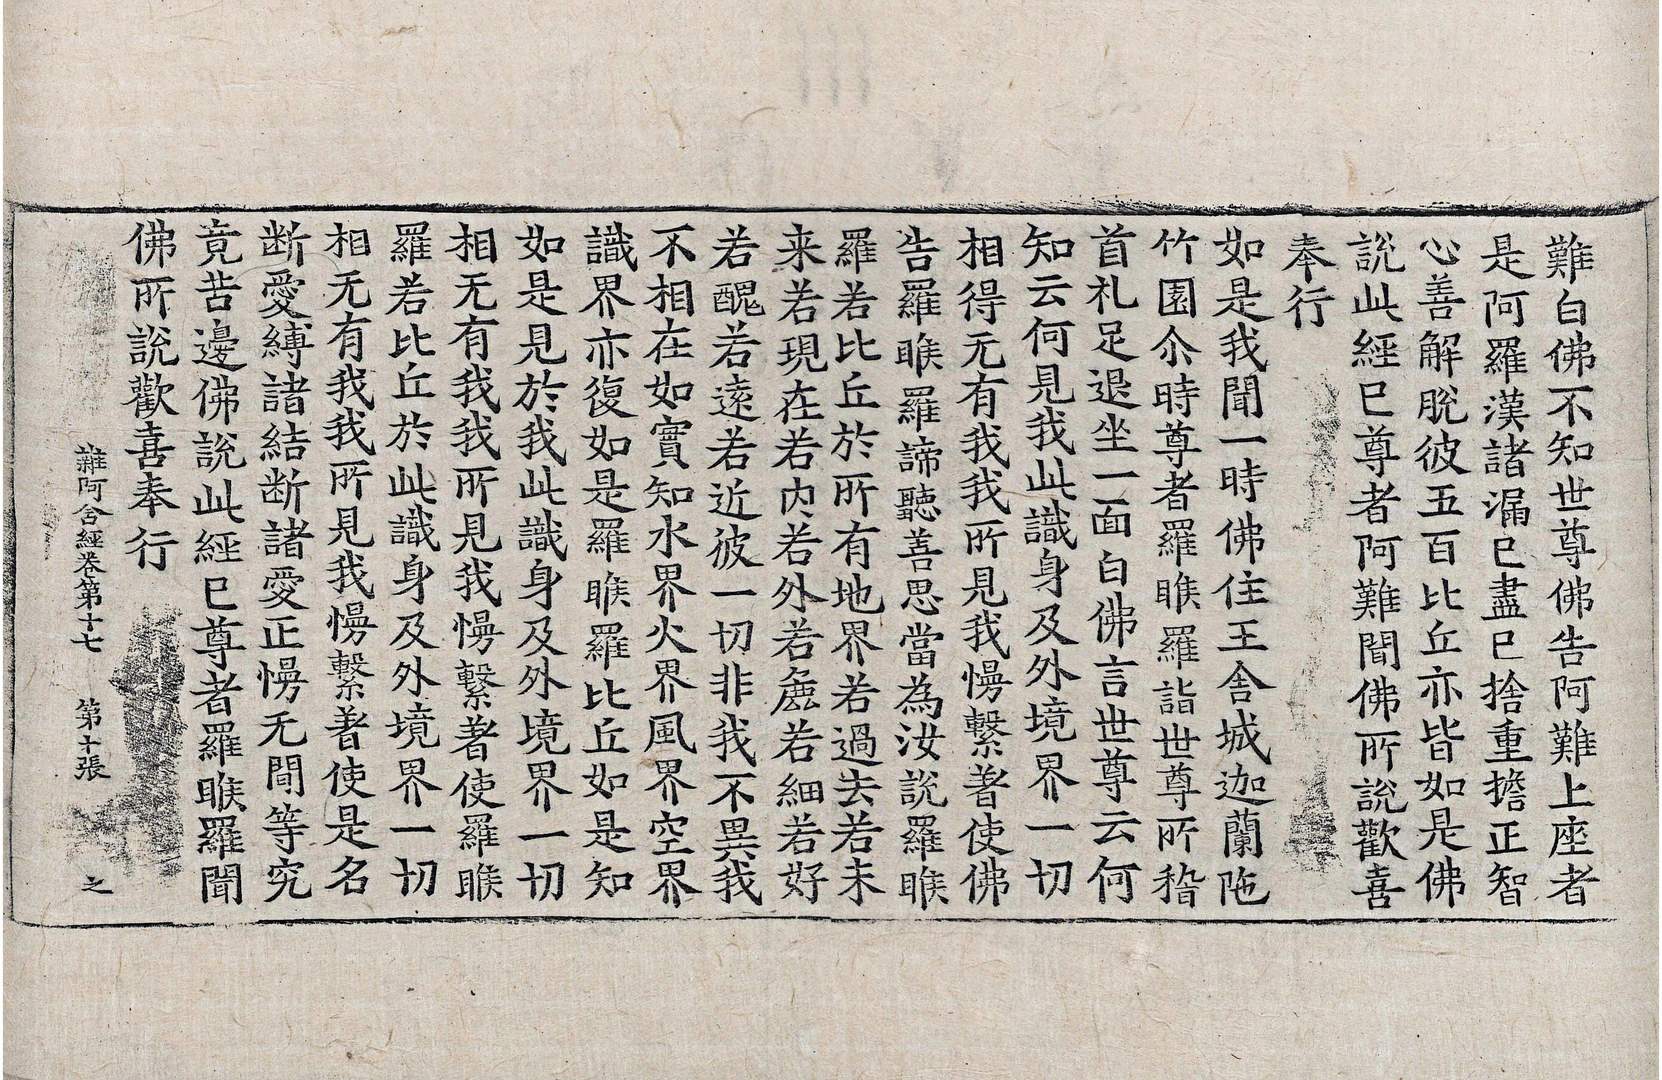 難白佛不知世尊佛告阿難上座者
是阿羅漢諸漏已盡已捨重擔正智
心善解脫彼五百比丘亦皆如是佛
說此經已尊者阿難聞佛所說歡喜
奉行
如是我聞一時佛住王舍城迦蘭陁
竹園尒時尊者羅睺羅詣世尊所稽
首礼足退坐一面白佛言世尊云何
知云何見我此識身及外境界一切
相得无有我我所見我慢繫著使佛
告羅睺羅諦聽善思當為汝說羅睺
羅若比丘於所有地界若過去若未
来若現在若内若外若麁若細若好
若醜若遠若近彼一切非我不異我
不相在如實知水界火界風界空界
識界亦復如是羅睺羅比丘如是知
如是見於我此識身及外境界一切
相无有我我所見我慢繫著使羅睺
羅若比丘於此識身及外境界一切
相无有我我所見我慢繫著使是名
断愛縛諸結断諸愛正慢无間等究
竟苦邊佛說此經已尊者羅睺羅聞
佛所說歡喜奉行
雜阿含經卷第十七 第十張 之